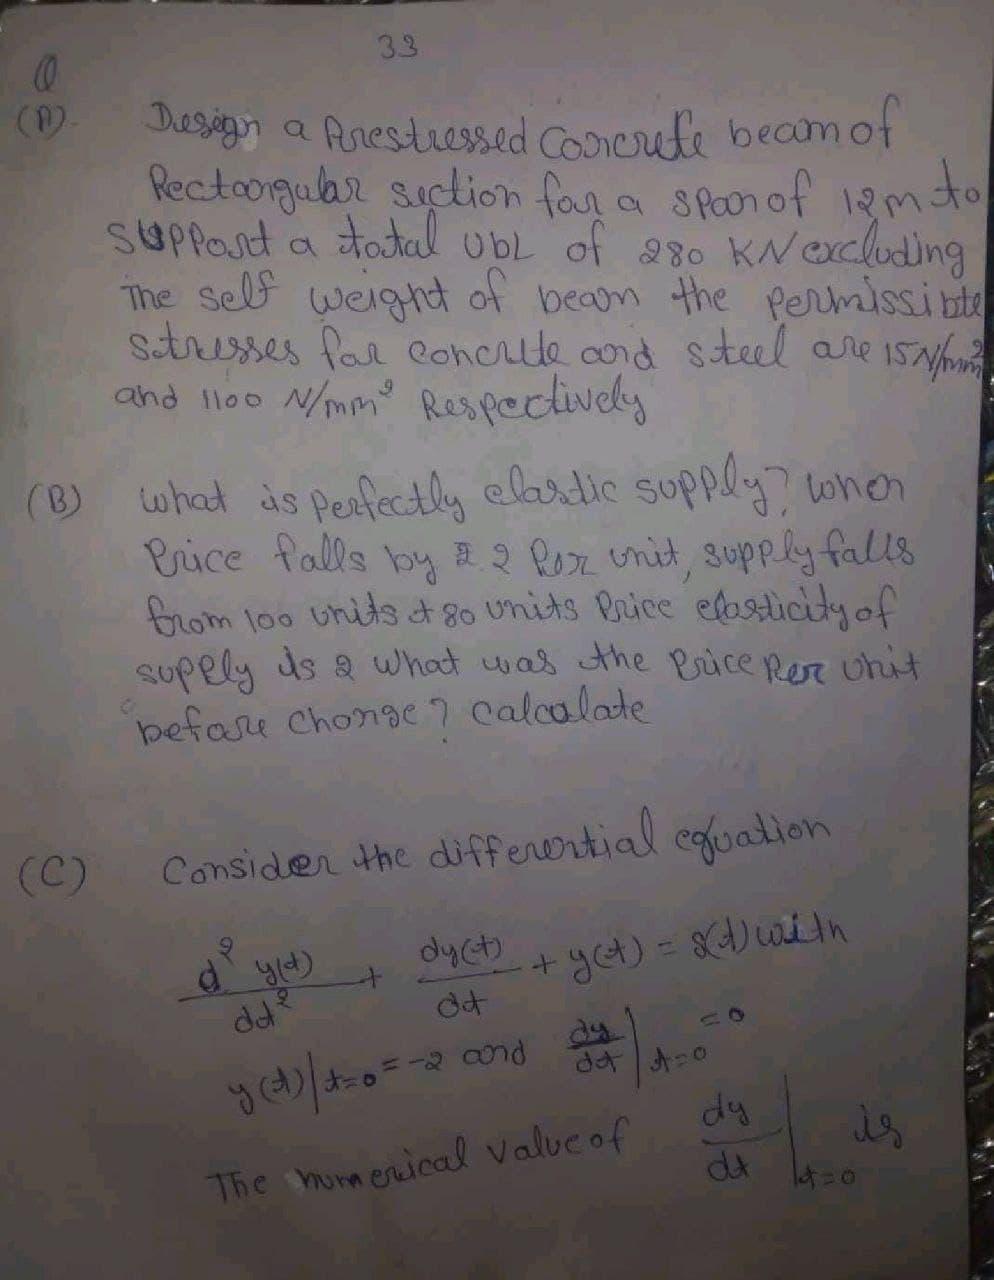 33
Q
(A). Design a Prestressed Concrete beam of
Rectangular section for a span of 12m to
support a total UDL of 280 KN excluding
The self weight of beam the permissible
stresses for concrete and steel are 15 N/mm²
and 1100 N/mm² Respectively
(B) what is perfectly elastic supply? when
Price falls by ₹ 2 Per unit, supply falls
from 100 units t 80 units Price elasticity of
supply is 2 What was the Price Per unit
before change? calculate
(C) Consider the differential equation
d² y(t)/dt² + dy(t)/dt + y(t) = δ(t) with
y(t)|t=0 = -2 and dy/dt|t=0 = 0
The numerical value of dy/dt|t=0 is